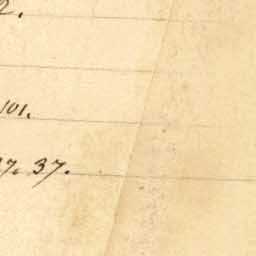 2.
101.
37.